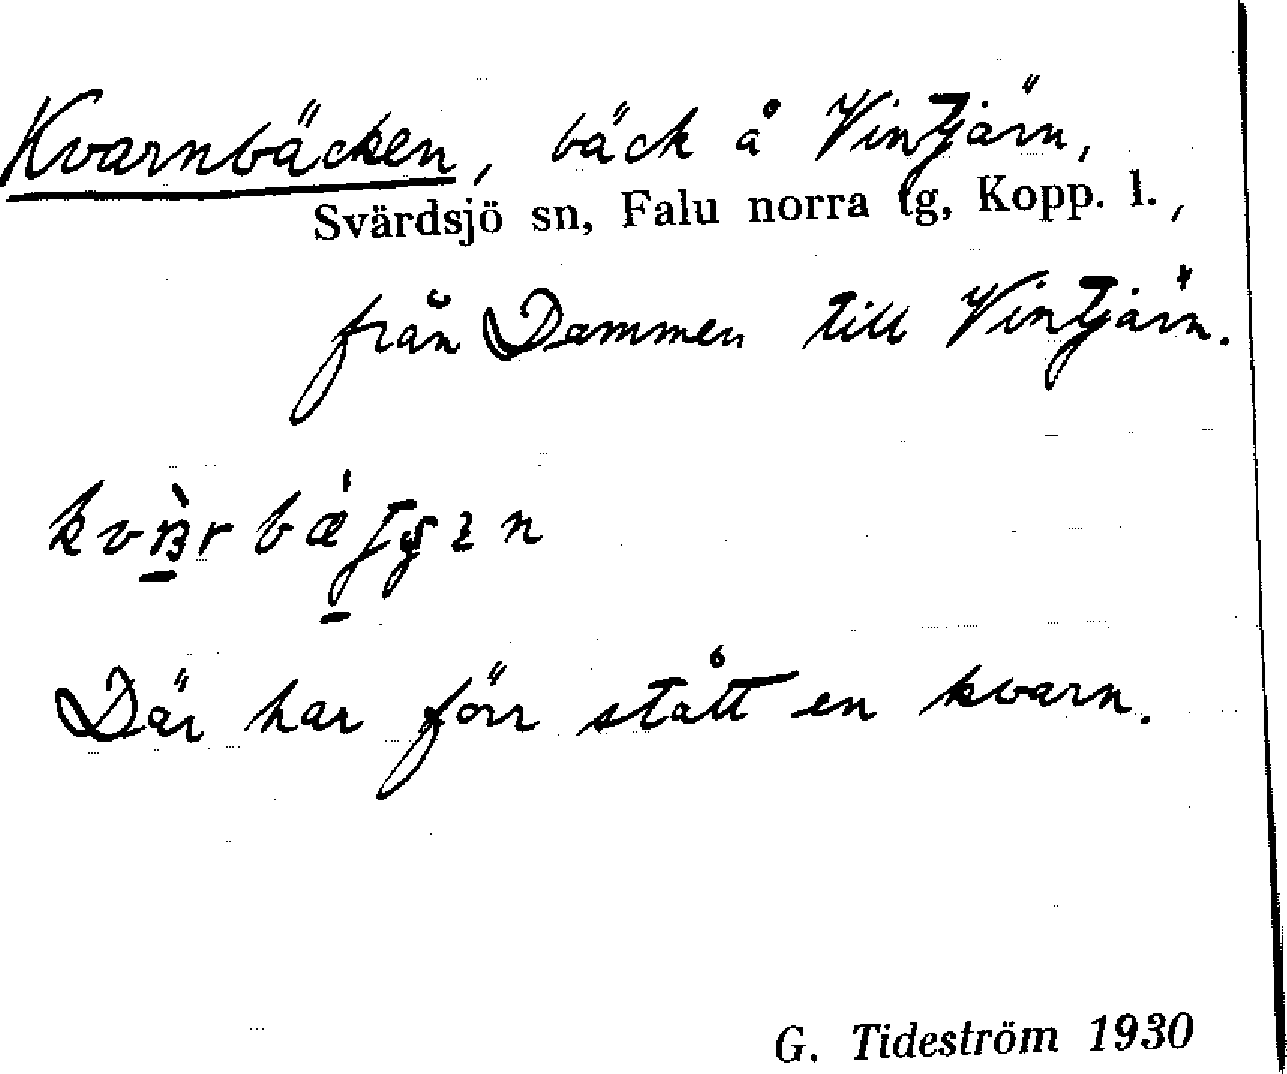 Kvarnbäcken, bäck å Vintjärn,
Svärdsjö sn, Falu norra tg, Kopp. l.,
från Dammen till Vintjärn.
Där har förr stått en kvarn.
G. Tideström 1930